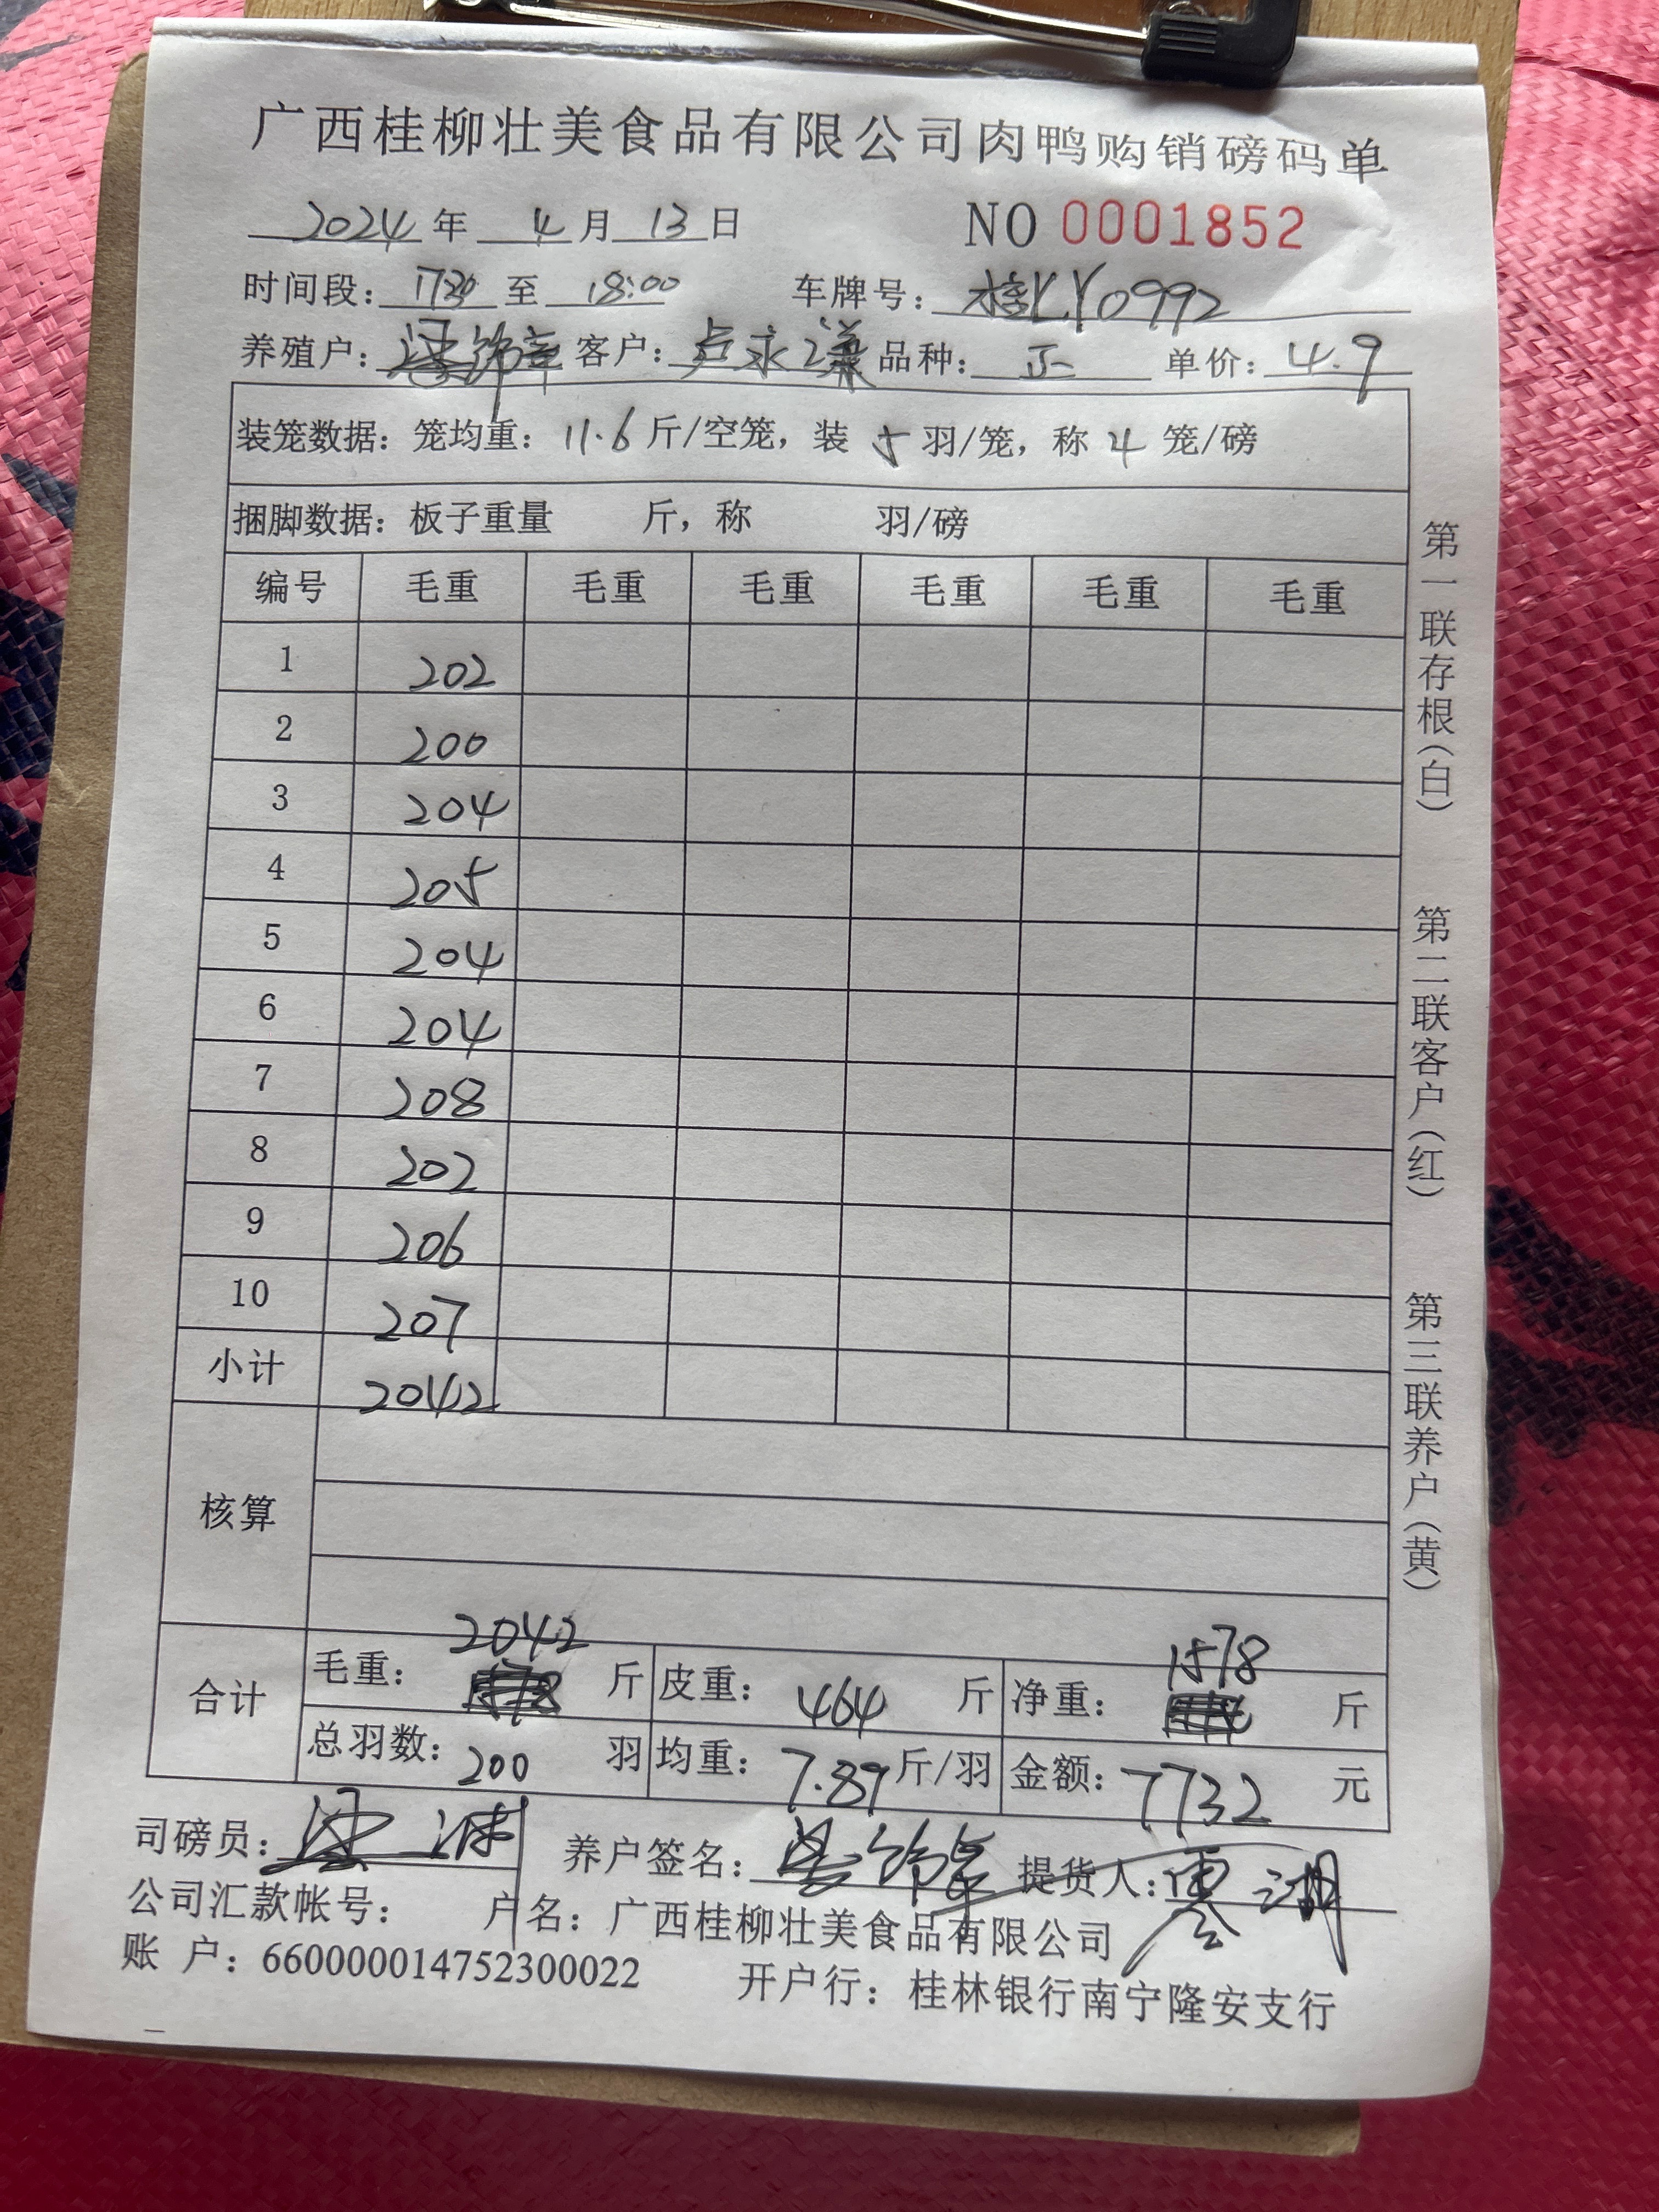 广西桂柳壮美食品有限公司肉鸭购销磅码单
2024 年 4 月 13 日 NO 0001852
时间段: 1730 至 18:00 车牌号: 桂KY0992
养殖户: 客户: 卢永 品种: 正 单价: 4.9
装笼数据: 笼均重: 11.6 斤/空笼, 装 5 羽/笼, 称 4 笼/磅
捆脚数据: 板子重量 斤, 称 羽/磅
编号 毛重 毛重 毛重 毛重 毛重 毛重
1 202
2 200
3 204
4 205
5 204
6 204
7 208
8 202
9 206
10 207
小计 2042
核算
合计
毛重: 2042 斤 皮重: 464 斤 净重: 1578 斤
总羽数: 200 羽 均重: 7.89 斤/羽 金额: 7732 元
司磅员: 养户签名: 提货人:
公司汇款帐号: 户名: 广西桂柳壮美食品有限公司
账 户: 660000014752300022 开户行: 桂林银行南宁隆安支行
第一联存根(白)
第二联客户(红)
第三联养户(黄)